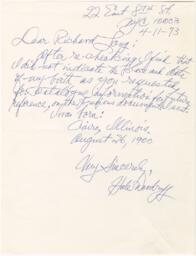 22 East 8th St
NYC 10003
4-11-73
Dear Richard Long:
After re-checking I find that
I did not indicate the Place and date
of my birth as you requested
for Catalogue information for future
reference, on the previous document I sent.
I was born:
Cairo, Illinois.
August 26, 1900
Very Sincerely,
Hale Woodruff